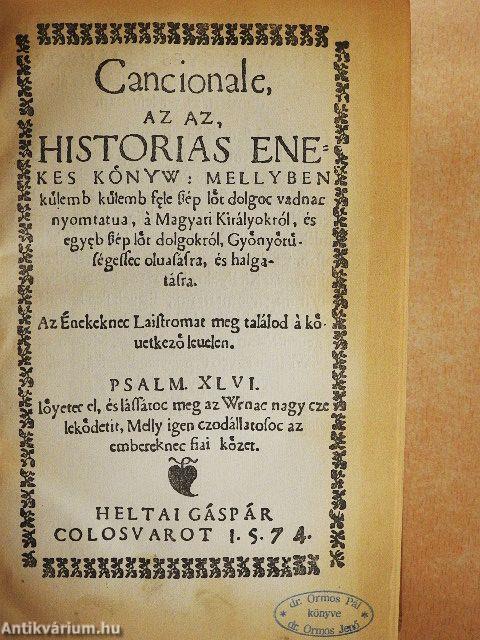 Cancionale,
AZ AZ,
HISTORIAS ENE-
KES KÖNYW: MELLYBEN
kůlemb kůlemb fęle ſiep lőt dolgoc vadnac
nyomtatua, à Magyari Királyokról, és
egyęb ſiep lőt dolgokról, Gyönyörű-
ſégeſſec oluaſáſra, és halga-
táſra.
Az Énekeknec Laiſtromat meg találod à kö-
uetkezö leuelen.
PSALM. XLVI.
Iőyetec el, és láſſátoc meg az Wrnac nagy cze
lekődetit, Melly igen czodállatoſoc az
embereknec fiai közet.
HELTAI GÁSPÁR
COLOSVAROT 1.5.7 4.
dr. Ormos Pál
könyve
dr. Ormos Jenő
Antikvárium.hu